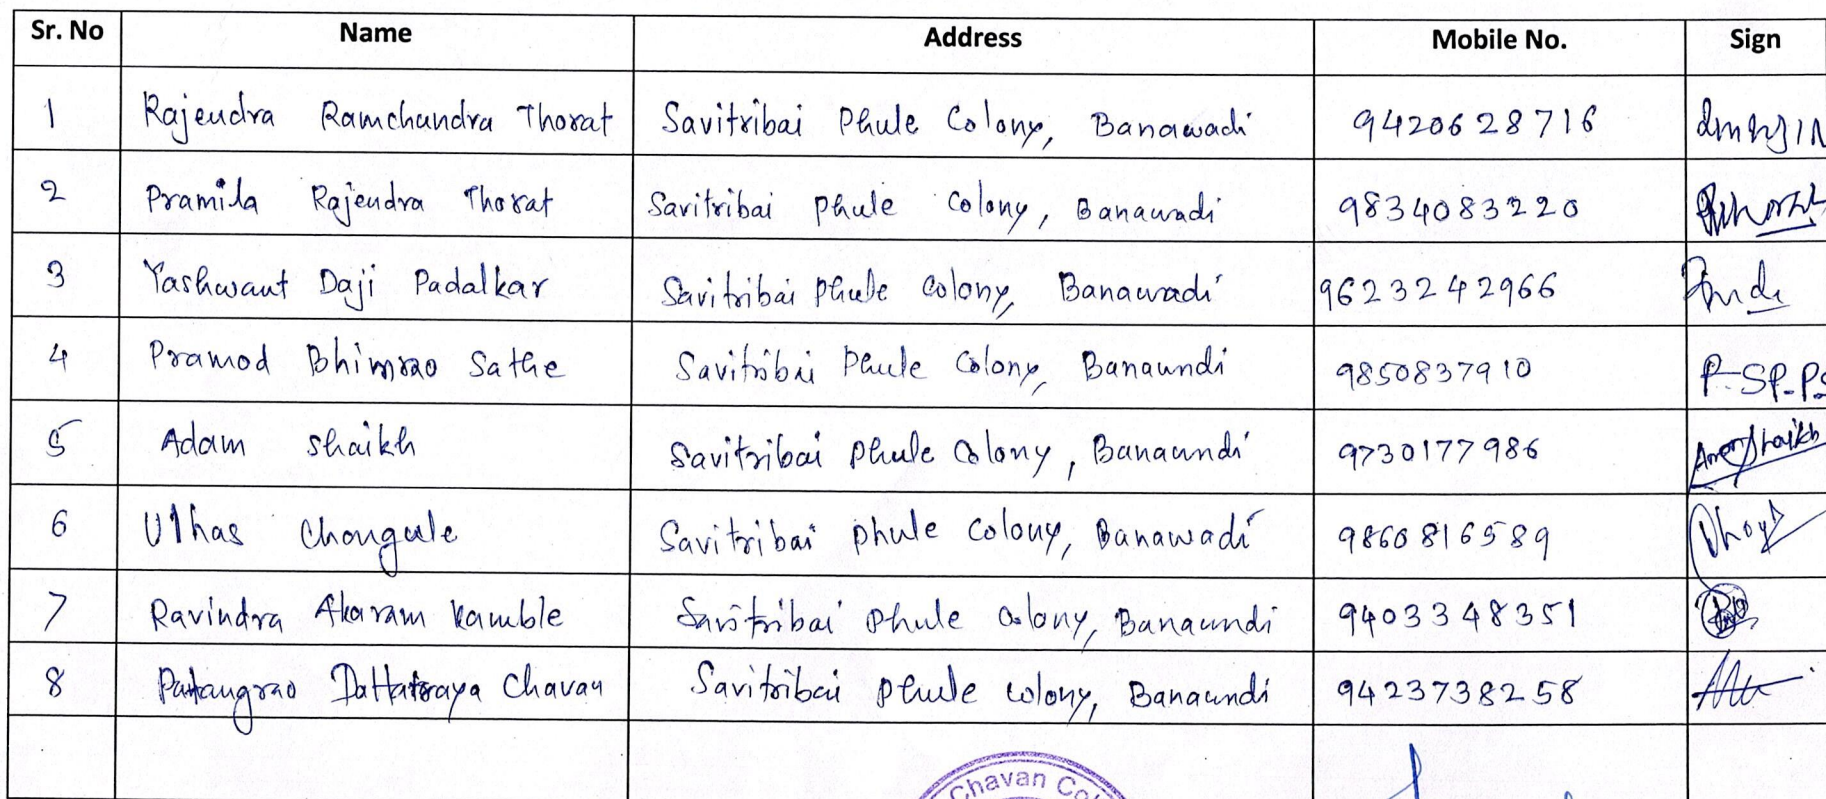 Sr. No Name Address Mobile No. Sign
1 Rajendra Ramchandra Thorat Savitribai Phule Colony, Banawadi 9420628716
2 Pramila Rajendra Thorat Savitribai Phule Colony, Banawadi 9834083220
3 Yashwant Daji Padalkar Savitribai Phule Colony, Banawadi 9623242966
4 Pramod Bhimrao Sathe Savitribai Phule Colony, Banawadi 9850837910
5 Adam Shaikh Savitribai Phule Colony, Banawadi 9730177986
6 Ulhas Chougule Savitribai Phule Colony, Banawadi 9860816589
7 Ravindra Akaram Kamble Savitribai Phule Colony, Banawadi 9403348351
8 Patangrao Dattatraya Chavan Savitribai Phule Colony, Banawadi 9423738258
Chavan